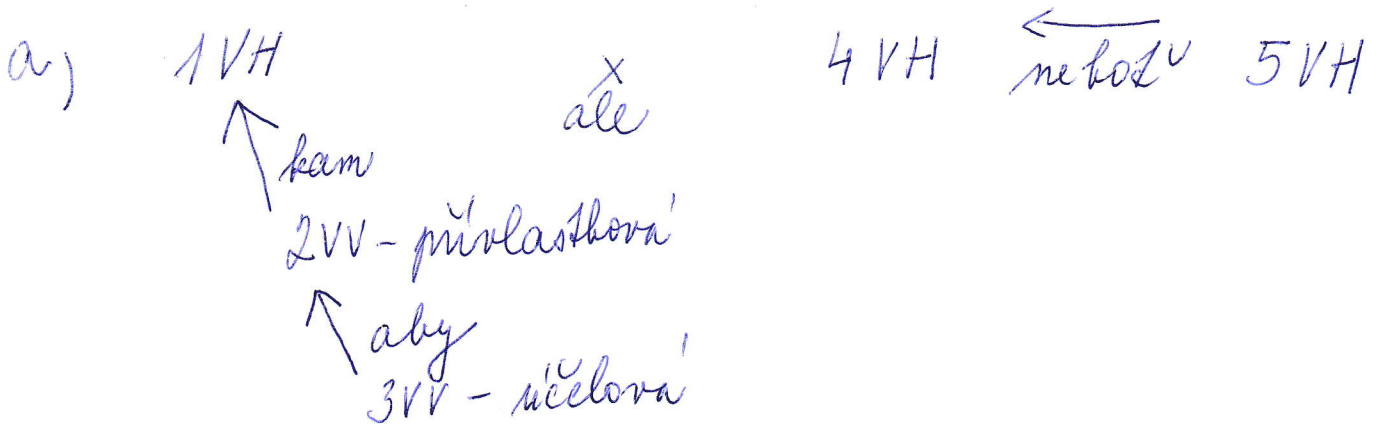 a) 1VH x 4VH neboť 5VH
ale
kam
2VV - přívlastková
aby
3VV - účelová